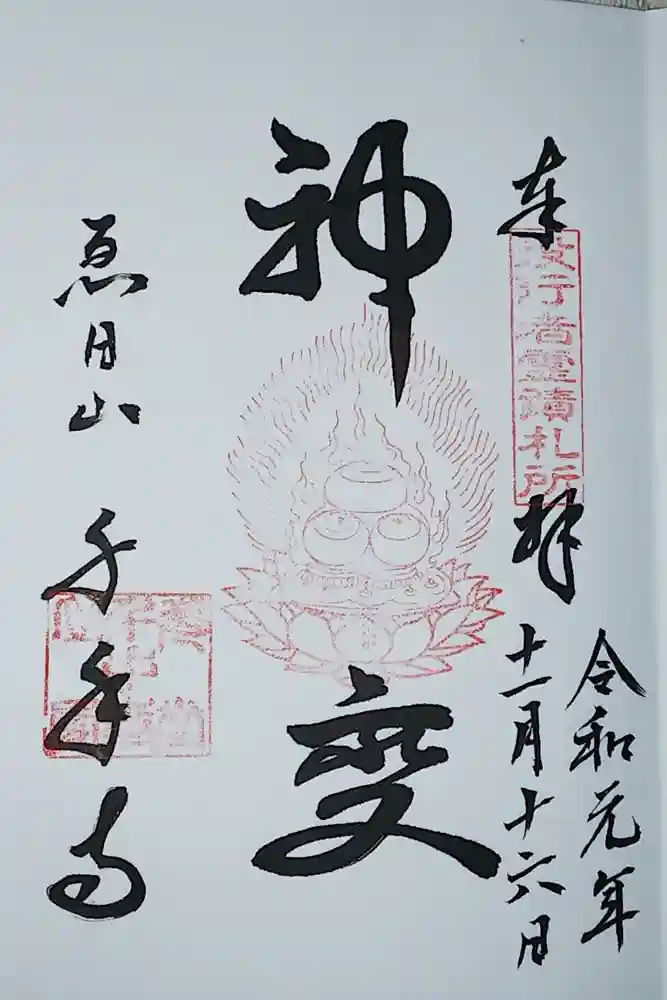 令和元年
十一月十六日
奉拝
役行者霊蹟札所
神変
恵日山
千手寺